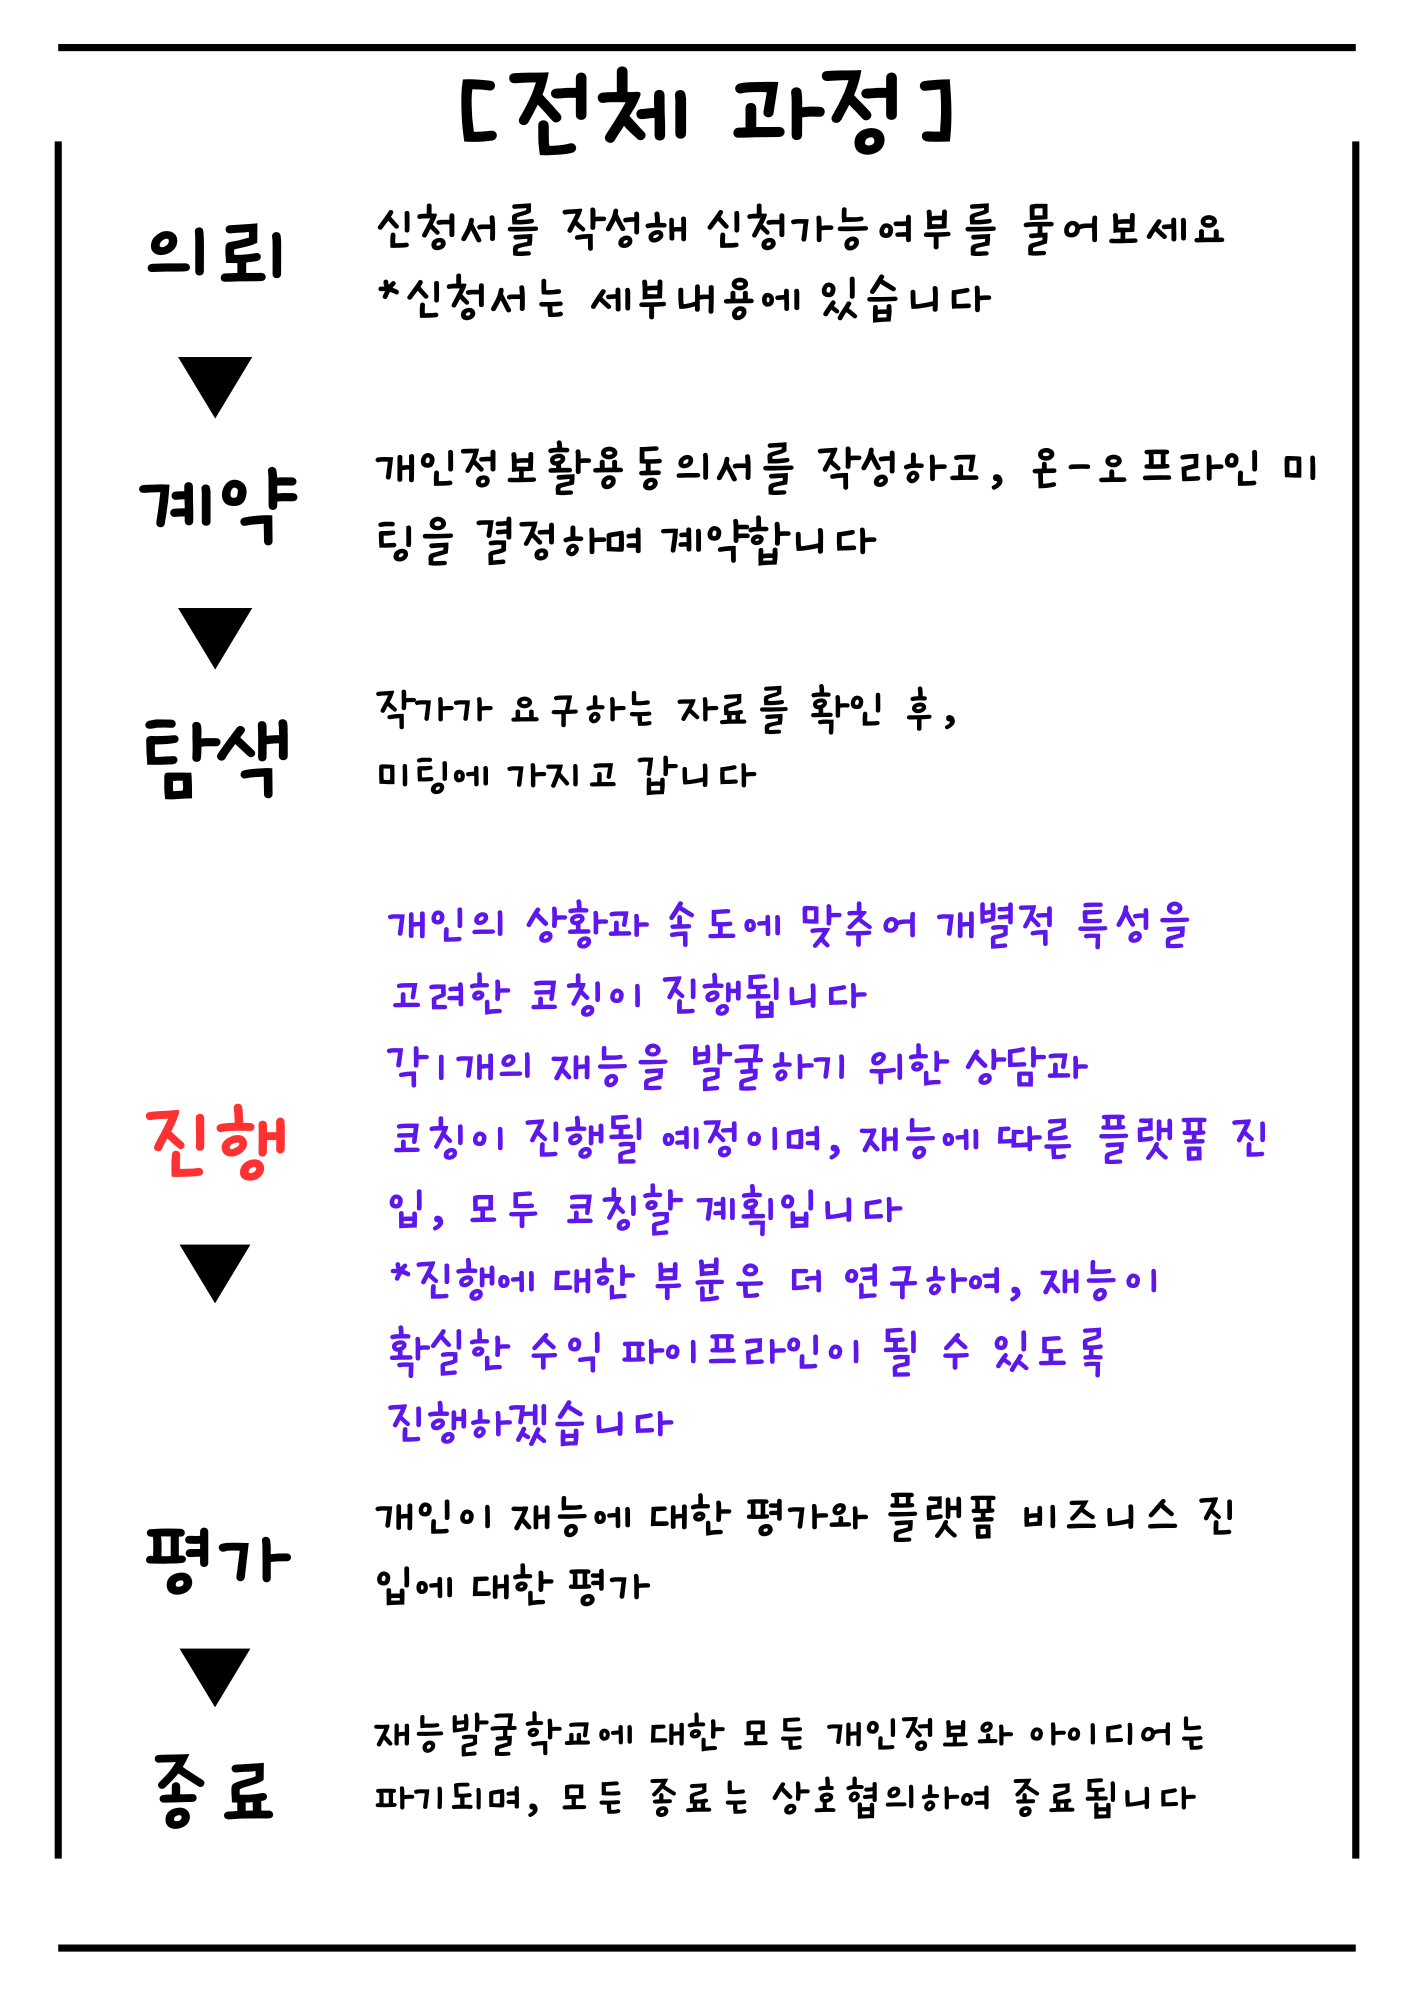 [전체 과정]
의뢰
신청서를 작성해 신청가능여부를 물어보세요
*신청서는 세부내용에 있습니다
계약
개인정보활용동의서를 작성하고, 온-오프라인 미
팅을 결정하며 계약합니다
탐색
작가가 요구하는 자료를 확인 후,
미팅에 가지고 갑니다
진행
개인의 상황과 속도에 맞추어 개별적 특성을
고려한 코칭이 진행됩니다
각1개의 재능을 발굴하기 위한 상담과
코칭이 진행될 예정이며, 재능에 따른 플랫폼 진
입, 모두 코칭할 계획입니다
*진행에 대한 부분은 더 연구하여, 재능이
확실한 수익 파이프라인이 될 수 있도록
진행하겠습니다
평가
개인이 재능에 대한 평가와 플랫폼 비즈니스 진
입에 대한 평가
종료
재능발굴학교에 대한 모든 개인정보와 아이디어는
파기되며, 모든 종료는 상호협의하여 종료됩니다